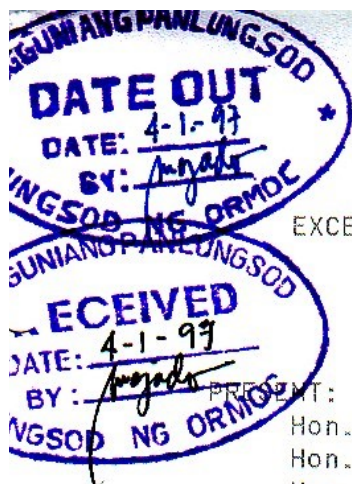 GGUNIANG PANLUNGSOD
DATE OUT
DATE: 4-1-97
BY:
NGSOD NG ORMOC
EXCE
GUNIANG PANLUNGSOD
ECEIVED
DATE: 4-1-97
BY:
NGSOD NG ORMOC
PRESENT:
Hon.
Hon.